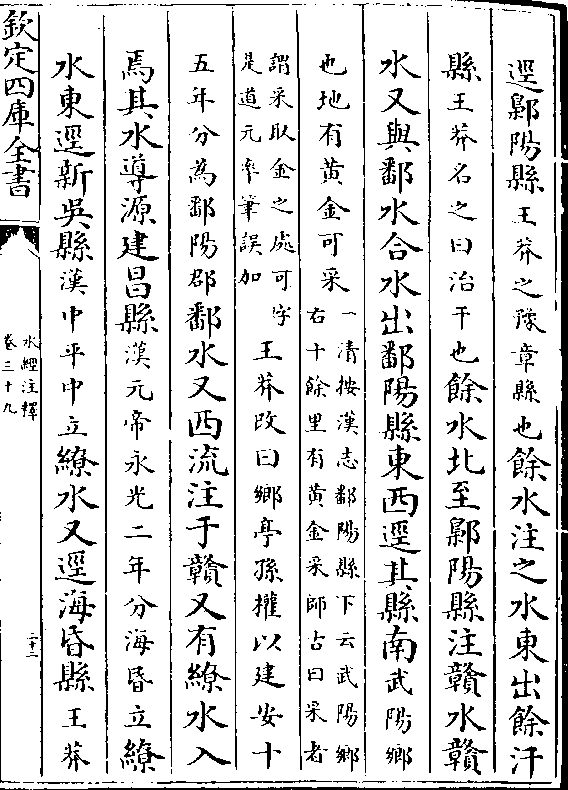 逕鄡陽縣王莽之豫章縣也餘水注之水東出餘汗
縣王莽名之曰治干也餘水北至鄡陽縣注贛水贛
水又與鄱水合水出鄱陽縣東西逕其縣南武陽鄉
也地有黃金可采
一清按漢志鄱陽縣下云武陽鄉
右十餘里有黃金采師古曰采者
謂采取金之處可字
是道元率筆誤加
王莽改曰鄉亭孫權以建安十
五年分為鄱陽郡鄱水又西流注于贛又有繚水入
焉其水導源建昌縣漢元帝永光二年分海昏立繚
水東逕新吳縣漢中平中立繚水又逕海昏縣王莽
欽定四庫全書
水經注釋
卷三十九
二十二